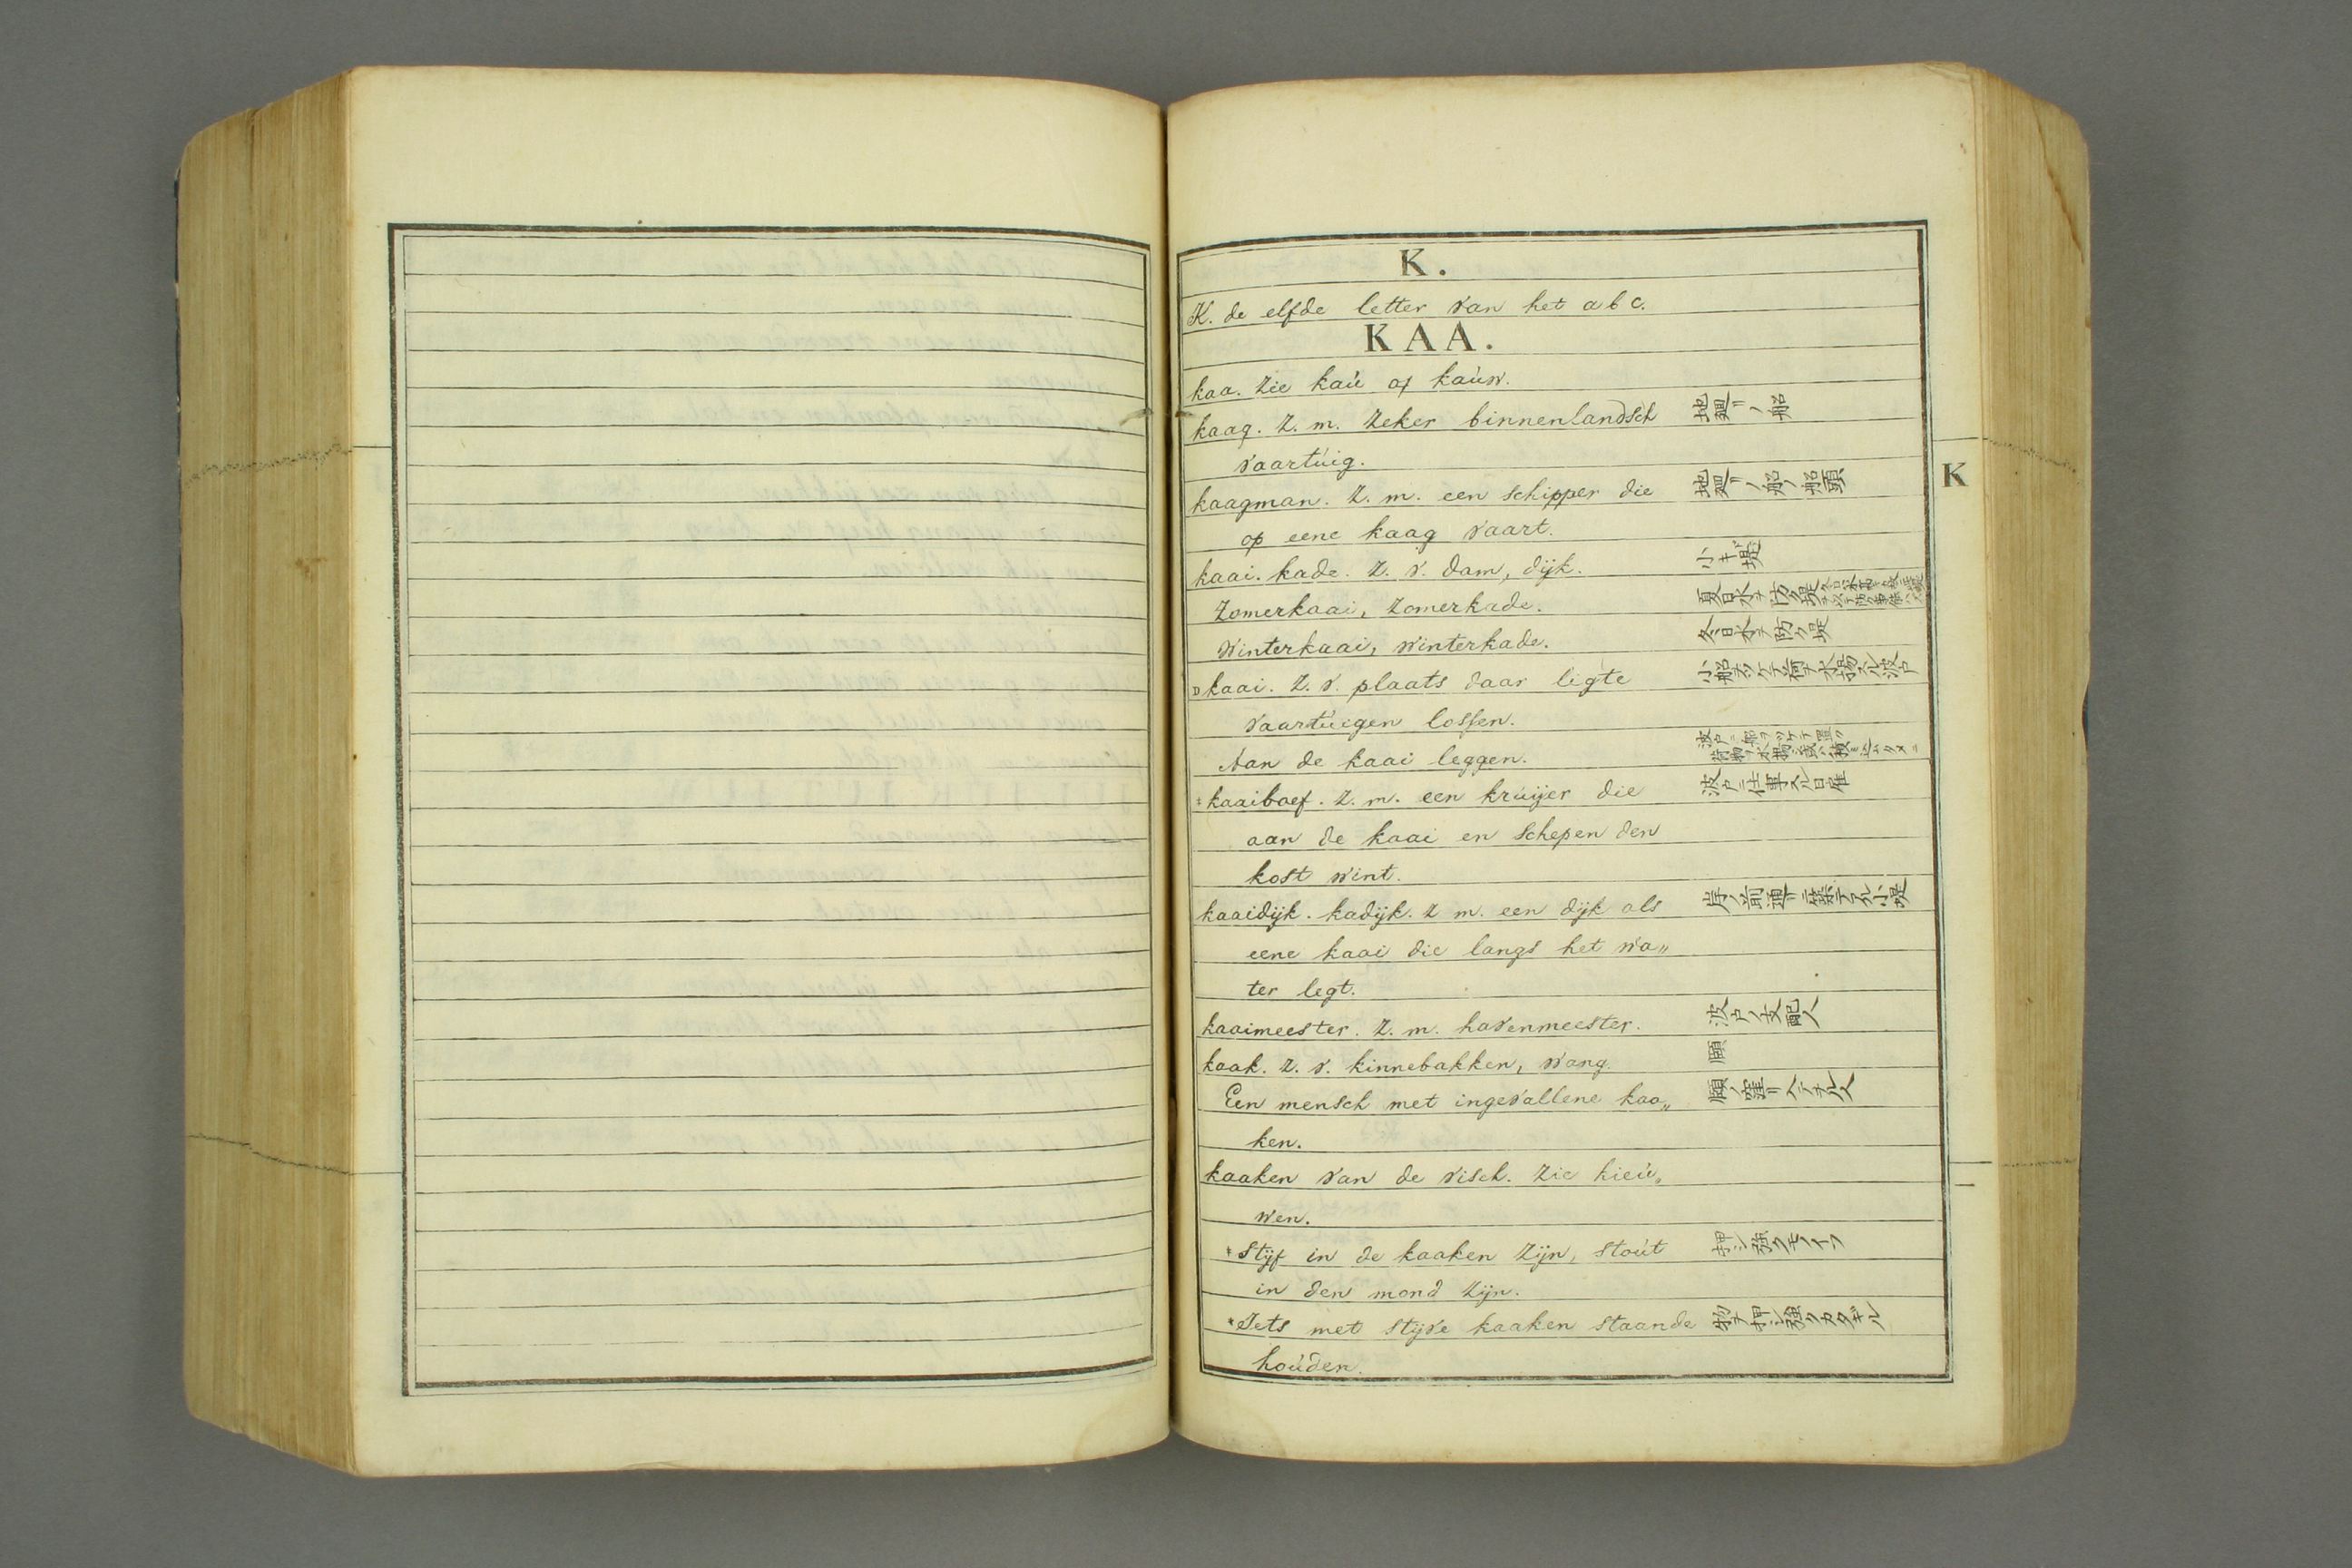 K.
K. de elfde letter van het a b c.
KAA.
kaa. zie kaú of kaúw.
kaag. z. m. zeker binnenlandsch 地廻リノ船
vaartúig.
kaagman. z. m. een schipper die 地廻リノ船ノ船頭
K
op eene kaag vaart.
kaai. kade. z. v. dam, dijk. 小キ堤
zomerkaai, zomerkade. 夏日水ヲ防ク堤
winterkaai, winterkade. 冬日水ヲ防ク堤
kaai. z. v. plaats daar ligte 小船ヲツケテ荷ヲ水揚スル波戸
vaartúigen lossen.
Aan de kaai leggen. 波戸ニ船ヲツケテ置ク
kaaiboef. z. m. een krúijer die 波戸ニ仕事スル日雇
aan de kaai en schepen den
kost wint.
kaaidijk. kadijk. z m. een dijk als 岸ノ前通リニ築テアル小堤
eene kaai die langs het wa„
ter legt.
kaaimeester. z. m. havenmeester. 波戸ノ支配人
kaak. z. v. kinnebakken, wang. 頤
Een mensch met ingevallene kaa„ 頤ノ窪リ入テヲル人
ken.
kaaken van de visch. zie kieú„
wen.
* Stijf in de kaaken zijn, stoút 押シ強クモノイフ
in den mond zijn.
* Iets met stijve kaaken staande 物ヲ押シ強クカタギル
hoúden.